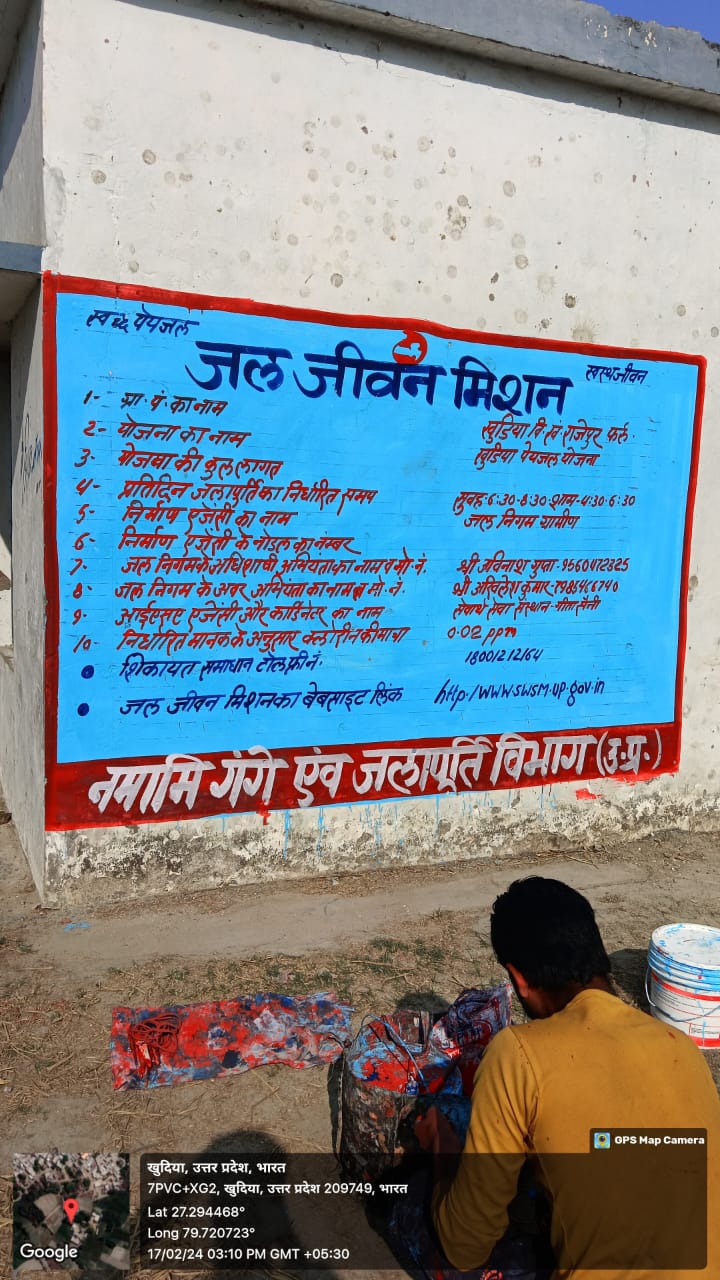 स्वच्छ पेयजल
स्वस्थ जीवन
जल जीवन मिशन
1- ग्रा. पं. का नाम खुडिया वि.ख. राजेपुर फर्रु.
2- योजना का नाम खुडिया पेयजल योजना
3- योजना की कुल लागत
4- प्रतिदिन जलापूर्ति का निर्धारित समय सुवह-6:30-8:30 शाम-4:30-6:30
5- निर्माण एजेंसी का नाम जल निगम ग्रामीण
6- निर्माण एजेंसी के नोडल का नंम्बर
7- जल निगम के अधिशाषी अभियंता का नाम व मो. नं. श्री अविनाश गुप्ता-9560472325
8- जल निगम के अवर अभियंता का नाम व मो. नं. श्री अखिलेश कुमार-
9- आईएसए एजेंसी और कार्डिनेटर का नाम सेवार्थ सेवा संस्थान-गीता सैनी
10- निर्धारित मानक के अनुसार क्लोरीन की मात्रा 0.02 ppm
• शिकायत समाधान टोल फ्री नं. 18001212164
• जल जीवन मिशन का बेबसाइट लिंक http:/www.swsm.up.gov.in
नमामि गंगे एंव जलापूर्ति विभाग (उ.प्र.)
GPS Map Camera
खुदिया, उत्तर प्रदेश, भारत
7PVC+XG2, खुदिया, उत्तर प्रदेश 209749, भारत
Lat 27.294468°
Long 79.720723°
17/02/24 03:10 PM GMT +05:30
Google